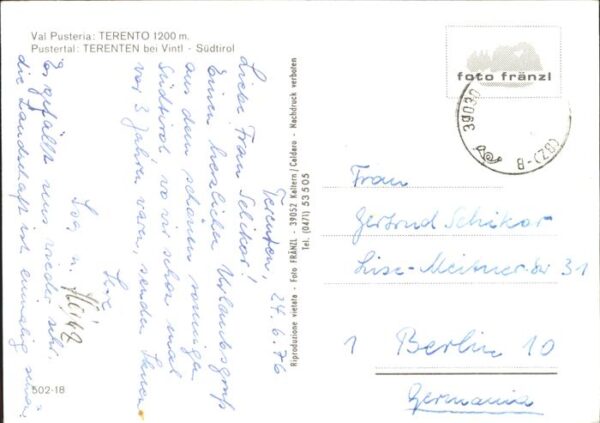 Val Pusteria: TERENTO 1200 m.
Pustertal: TERENTEN bei Vintl - Südtirol
Terenten, 24.6.76
Liebe Frau Schikor!
Einen herzlichen Urlaubsgruß
aus dem schönen sonnigen
Südtirol, wo wir schon mal
vor 3 Jahren waren, senden Ihnen
Ihre
u.
Es gefällt uns wieder sehr.
die Landschaft ist einmalig schön.
502-18
Riproduzione vietata - Foto FRÄNZL - 39052 Kaltern/Caldaro - Nachdruck verboten
Tel. (0471) 53505
foto fränzl
39030
(BZ)-B
Frau
Gertrud Schikor
Lise-Meitner-Str 31
1 Berlin 10
Germania